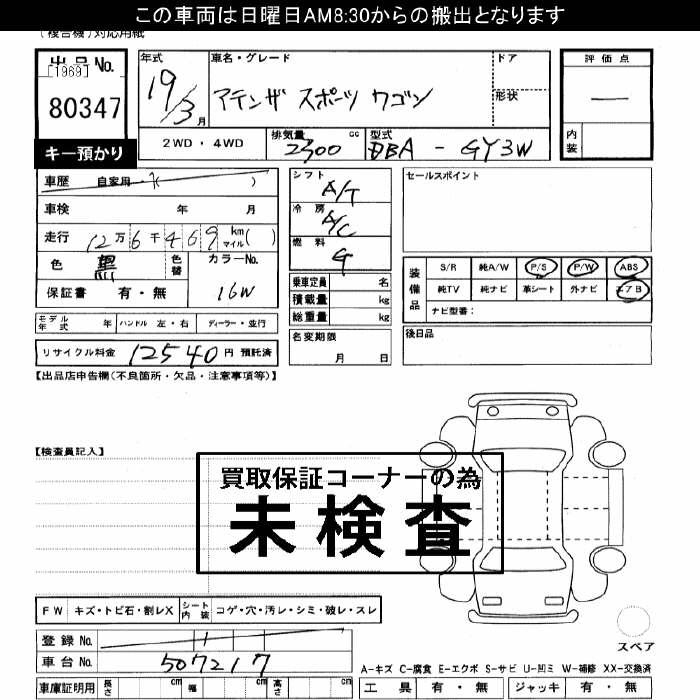 この車両は日曜日AM8:30からの搬出となります
(複合機)対応用紙
出品No.
[1969]
80347
キー預かり
年式
19/3月
車名・グレード
アテンザ スポーツ ワゴン
ドア
形状
評価点
—
内装
2WD・4WD
排気量 cc
2300
型式
DBA - GY3W
車歴 自家用・( )
車検 年 月
走行 12万6千469 km マイル( )
色 黒 色替
カラーNo.
16W
保証書 有・無
モデル年式 年 ハンドル 左・右 ディーラー・並行
リサイクル料金 12540円 預託済
シフト A/T
冷房 A/C
燃料 G
乗車定員 名
積載量 kg
総重量 kg
名変期限
月 日
セールスポイント
装備品
S/R 純A/W P/S P/W ABS
純TV 純ナビ 革シート 外ナビ エアB
ナビ型番:
後日品
【出品店申告欄(不良箇所・欠品・注意事項等)】
【検査員記入】
買取保証コーナーの為
未検査
FW キズ・トビ石・割レX シート内装 コゲ・穴・汚レ・シミ・破レ・スレ
登録No.
車台No. 507217
車庫証明用 長さ cm 幅 cm 高さ cm
スペア
A-キズ C-腐食 E-エクボ S-サビ U-凹ミ W-補修 XX-交換済
工具 有・無 ジャッキ 有・無